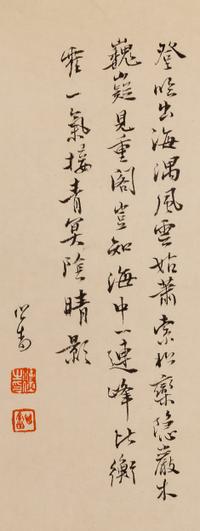 登臨出海隅風雲始蕭索松欒隱巖木
巍嶷見重閣豈知海中一連峰比衡
霍一氣接青冥陰晴影
心畬